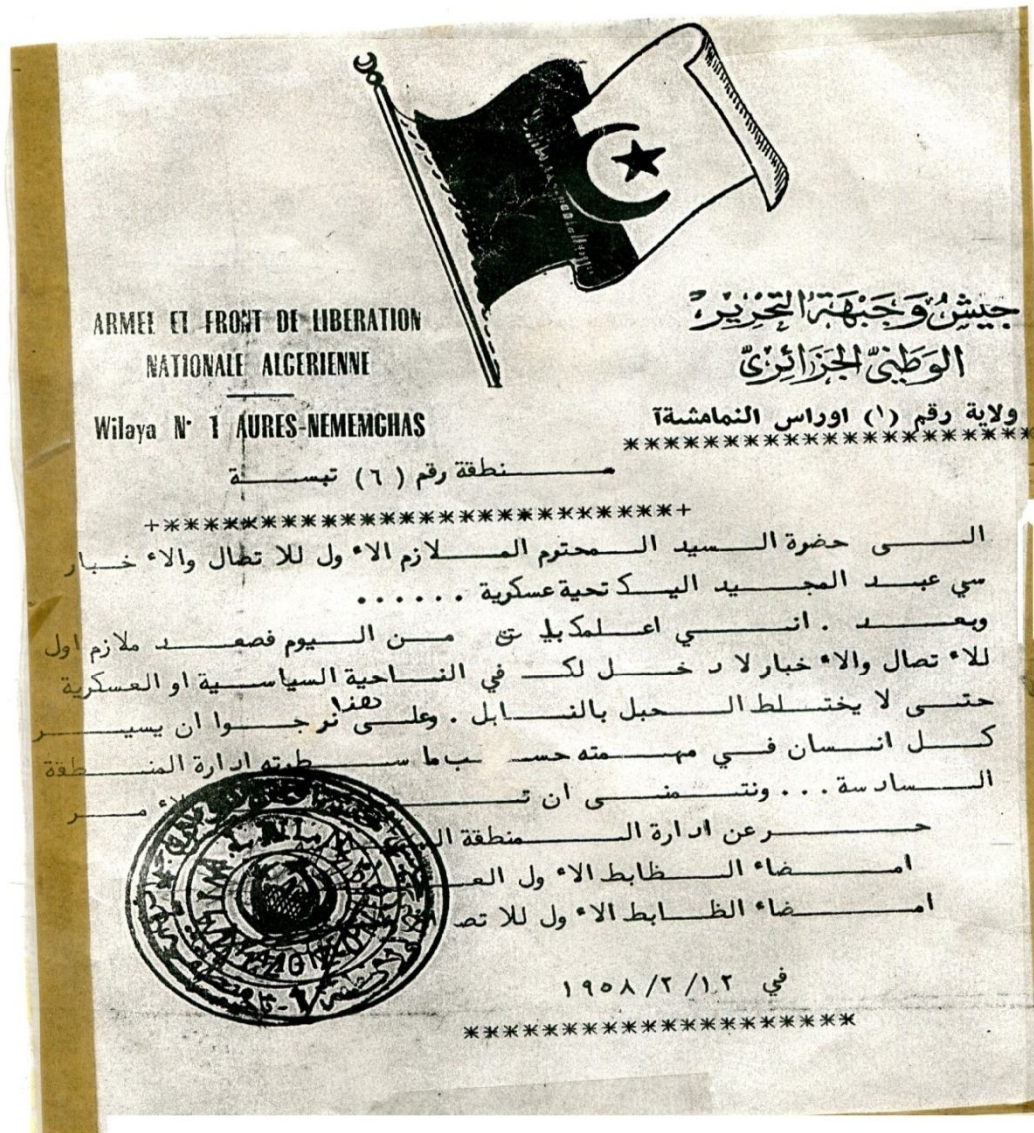 ARMEE ET FRONT DE LIBERATION
NATIONALE ALGERIENNE
Wilaya N· 1 AURES-NEMEMCHAS
جيش وَجَبْهَة التحرير
الوَطني الجَزَائِرِيّ
ولاية رقم (١) اوراس النمامشةآ
**********************
منطقة رقم (٦) تبسة
+***************************+
الى حضرة السيد المحترم الملازم الاٴ ول للا تطال والاٴ خبار
سي عبد المجيد اليك تحية عسكرية ......
وبعد . انني اعلمك من اليوم فصعد ملازم اول
للاٴ تصال والاٴ خبار لا د خل لك في الناحية السياسية او العسكرية
حتى لا يختلط الحبل بالنابل . وعلى هذا نرجوا ان يسير
كل انسان في مهمته حسب ما سطرته ادارة المنطقة
السادسة ... ونتمنى ان
حرر عن ادارة المنطقة
امضاء الظابط الاٴ ول
امضاء الظابط الاٴ ول للا تصا
في ١٩٥٨/٢/١٢
********************